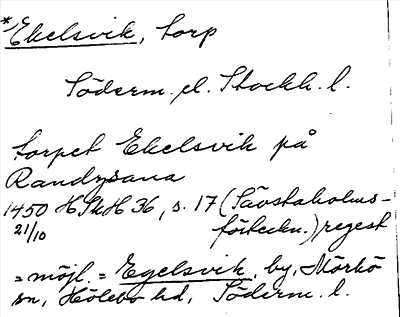 *Ekelsvik, torp
Söderm. el. Stockh. l.
torpet Ekelsvik på
Randzsana
1450 HSkH 36, s. 17 (Sävstaholms-
21/10 förteckn.) regest
= möjl. = Egelsvik, by, Mörkö
sn, Hölebo hd, Söderm. l.